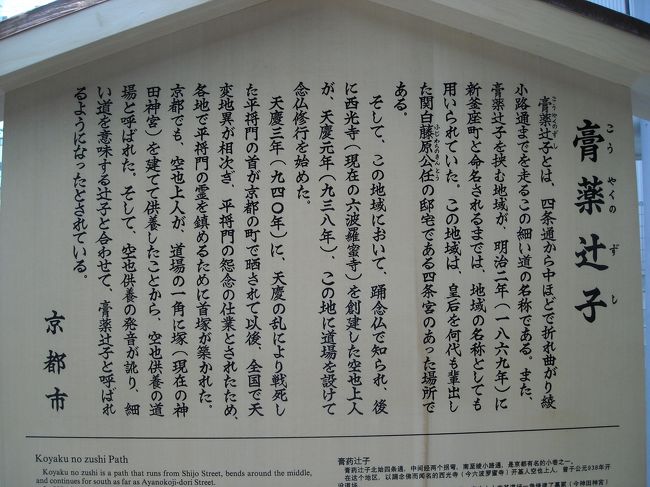 膏薬辻子
こう やくの ずし
膏薬辻子とは、四条通から中ほどで折れ曲がり綾
こうやくのずし
小路通までを走るこの細い道の名称である。また、
膏薬辻子を挟む地域が、明治二年(一八六九年)に
新釜座町と命名されるまでは、地域の名称としても
用いられていた。この地域は、皇后を何代も輩出し
た関白藤原公任の邸宅である四条宮のあった場所で
ふじわらのきんとう
ある。
そして、この地域において、踊念仏で知られ、後
に西光寺(現在の六波羅蜜寺)を創建した空也上人
が、天慶元年(九三八年)、この地に道場を設けて
念仏修行を始めた。
天慶三年(九四〇年)に、天慶の乱により戦死し
た平将門の首が京都の町で晒されて以後、全国で天
変地異が相次ぎ、平将門の怨念の仕業とされたため、
各地で平将門の霊を鎮めるために首塚が築かれた。
京都でも、空也上人が、道場の一角に塚(現在の神
田神宮)を建てて供養したことから、空也供養の道
場と呼ばれた。そして、空也供養の発音が訛り、細
い道を意味する辻子と合わせて、膏薬辻子と呼ばれ
るようになったとされている。
京都市
Koyaku no zushi Path
Koyaku no zushi is a path that runs from Shijo Street, bends around the middle,
and continues for south as far as Ayanokoji-dori Street.
膏药辻子
膏药辻子北始四条通,中间经两个拐弯,南至绫小路通,是京都有名的小巷之一。
在这个地区,以踊念佛而闻名的西光寺(今六波罗蜜寺)开基人空也上人,曾于公元938年开